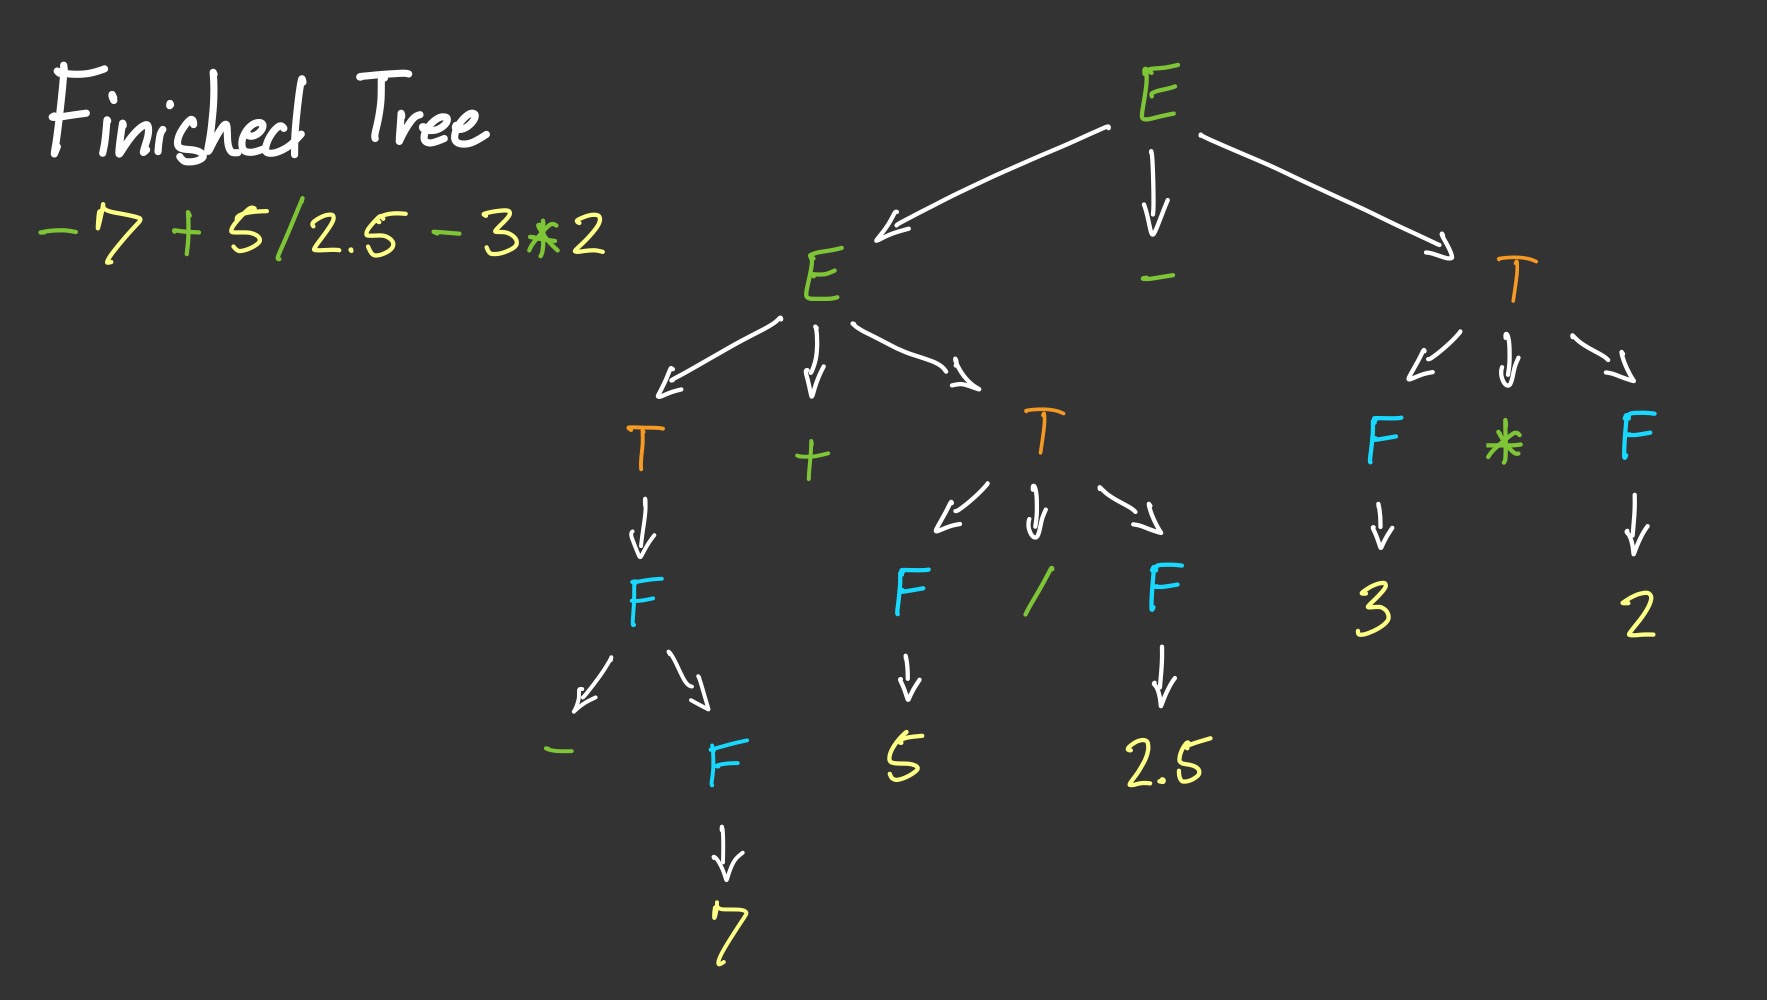 Finished Tree
-7 + 5/2.5 - 3*2
E
E - T
T + T F * F
F F / F 3 2
- F 5 2.5
7